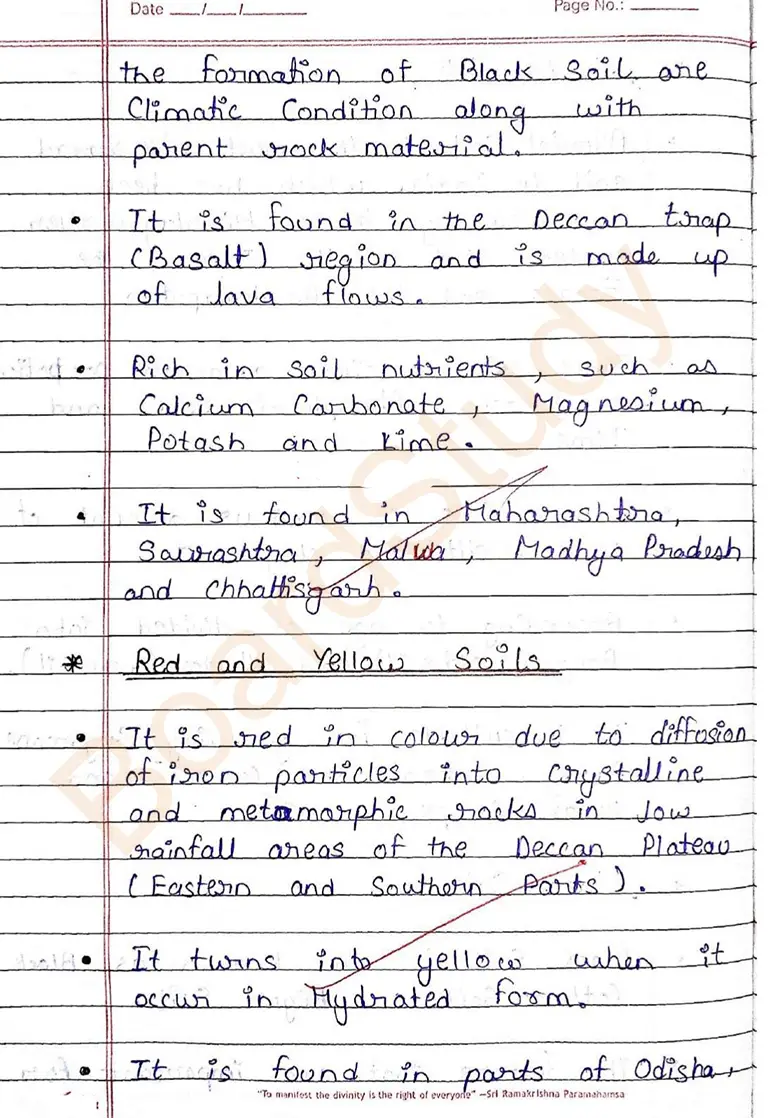 Date ___/___/___ Page No.: ______
the formation of Black Soil are
Climatic Condition along with
parent rock material.
• It is found in the Deccan trap
(Basalt) region and is made up
of lava flows.
• Rich in soil nutrients, such as
Calcium Carbonate, Magnesium,
Potash and Lime.
• It is found in Maharashtra,
Saurashtra, Malwa, Madhya Pradesh
and Chhattisgarh.
* Red and Yellow Soils
• It is red in colour due to diffusion
of iron particles into crystalline
and metamorphic rocks in low
rainfall areas of the Deccan Plateau
(Eastern and Southern Parts).
• It turns into yellow when it
occur in Hydrated form.
• It is found in parts of Odisha,
"To manifest the divinity is the right of everyone" –Sri Ramakrishna Paramahamsa
BoardStudy